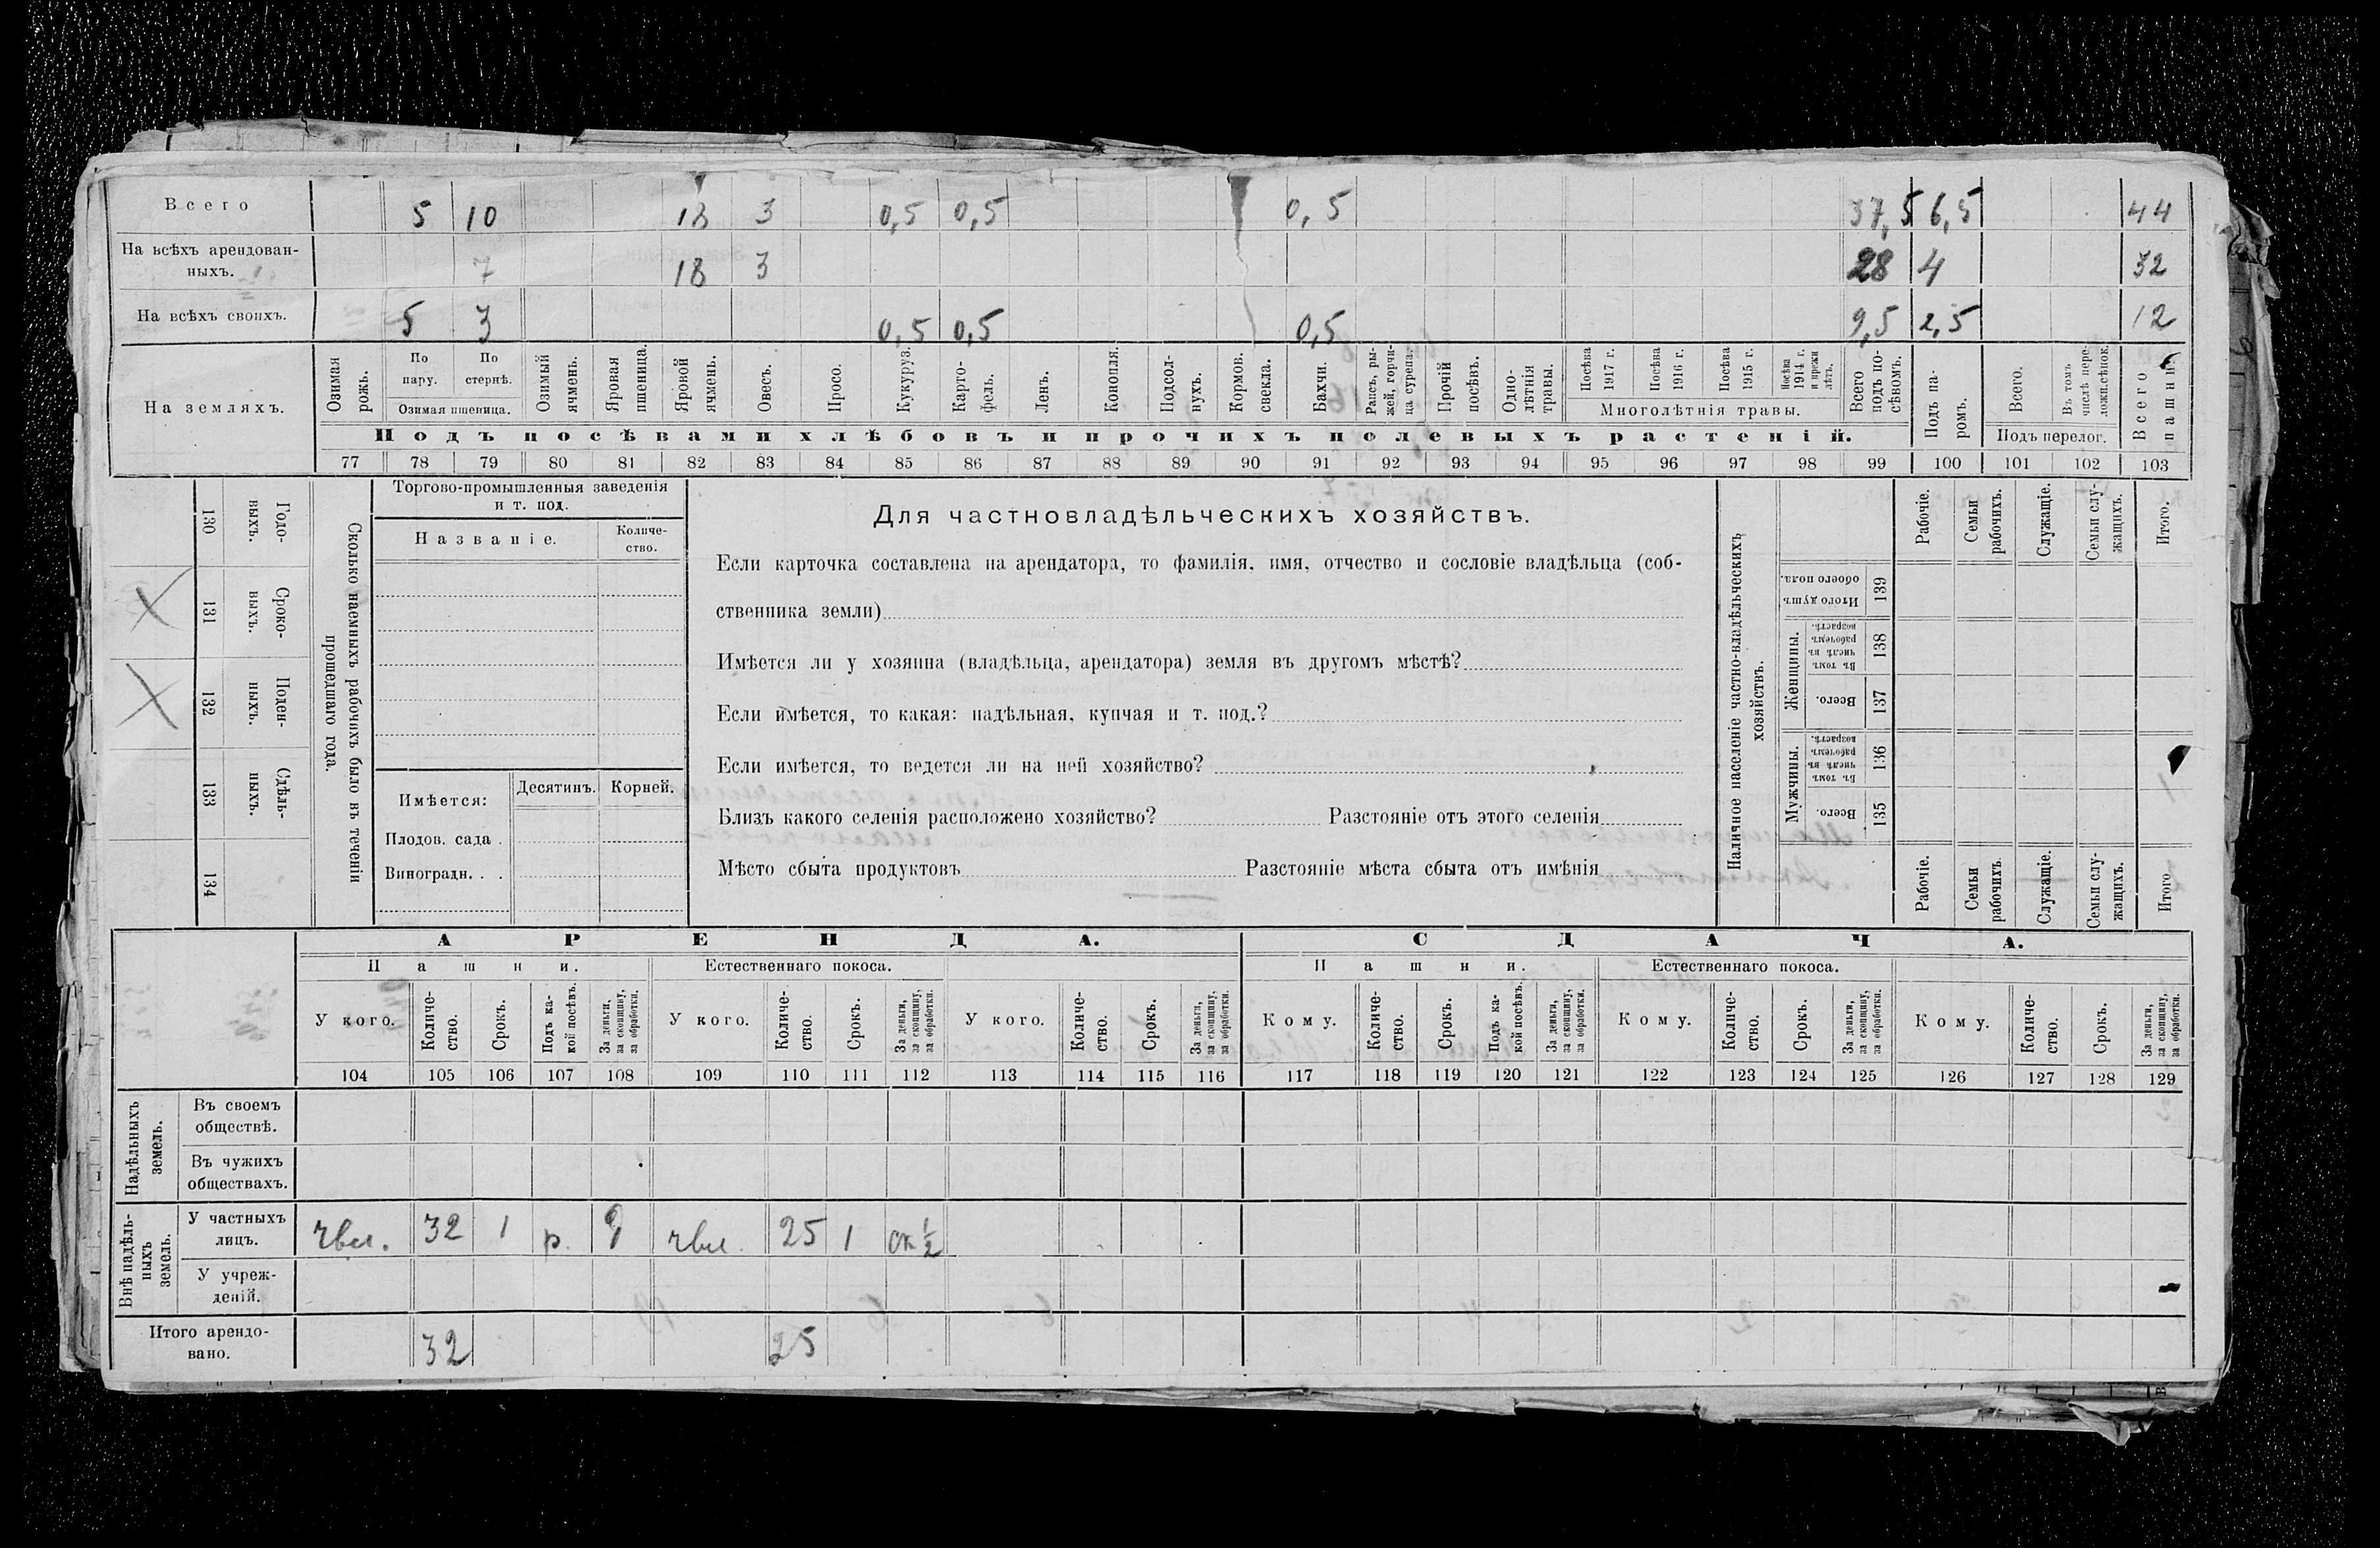 Всего 5 10 18 3 0,5 0,5 0,5 37,5 6,5 44
На всѣхъ арендован-
ныхъ. 7 18 3 28 4 32
На всѣхъ своихъ. 5 3 0,5 0,5 0,5 9,5 2,5 12
На земляхъ.
Озимая рожь.
По пару.
По стернѣ.
Озимая пшеница.
Озимый ячмень.
Яровая пшеница.
Яровой ячмень.
Овесъ.
Просо.
Кукуруз.
Карто-
фель.
Ленъ.
Конопля.
Подсол-
нухъ.
Кормов. свекла.
Бахчи.
Рапсъ, ры-
жей, горчи-
ца сурепна.
Прочій посѣвъ.
Одно-
лѣтнія травы.
Посѣва 1917 г.
Посѣва 1916 г.
Посѣва 1915 г.
Посѣва 1914 г. и прежн лѣтъ.
Многолѣтнія травы.
Всего подъ по-
сѣвомъ.
Подъ па-
ромъ.
Всего.
Въ томъ числѣ пере-
ложн.сѣнок.
Подъ перелог.
Всего пашни.
Подъ посѣвами хлѣбовъ и прочихъ полевыхъ растеній.
77 78 79 80 81 82 83 84 85 86 87 88 89 90 91 92 93 94 95 96 97 98 99 100 101 102 103
130 Годо-
выхъ.
131 Сроко-
выхъ.
132 Поден-
ныхъ.
133 Сдѣль-
ныхъ.
134
Сколько наемныхъ рабочихъ было въ теченіи
прошедшаго года.
Торгово-промышленныя заведенія
и т. под.
Названіе.
Количе-
ство.
Имѣется:
Десятинъ. Корней.
Плодов. сада .
Виноградн. . .
Для частновладѣльческихъ хозяйствъ.
Если карточка составлена на арендатора, то фамилія, имя, отчество и сословіе владѣльца (соб-
ственника земли)
Имѣется ли у хозяина (владѣльца, арендатора) земля въ другомъ мѣстѣ?
Если имѣется, то какая: надѣльная, купчая и т. под.?
Если имѣется, то ведется ли на ней хозяйство?
Близъ какого селенія расположено хозяйство? Разстояніе отъ этого селенія
Мѣсто сбыта продуктовъ Разстояніе мѣста сбыта отъ имѣнія
Наличное населеніе частно-владѣльческихъ
хозяйствъ.
Рабочіе.
Семьи рабочихъ.
Служащіе.
Семьи слу-
жащихъ.
Итого.
Итого душъ обоего пола. 139
Женщины.
Въ томъ числѣ въ рабочемъ возрастѣ. 138
Всего. 137
Мужчины.
Въ томъ числѣ въ рабочемъ возрастѣ. 136
Всего. 135
Рабочіе.
Семьи рабочихъ.
Служащіе.
Семьи слу-
жащихъ.
Итого
АРЕНДА. СДАЧА.
Пашни. Естественнаго покоса. Пашни. Естественнаго покоса.
У кого. Количе-
ство. Срокъ. Подъ ка-
кой посѣвъ. За деньги, за скопщину, за обработки.
У кого. Количе-
ство. Срокъ. За деньги, за скопщину, за обработки.
У кого. Количе-
ство. Срокъ. За деньги, за скопщину, за обработки.
Кому. Количе-
ство. Срокъ. Подъ ка-
кой посѣвъ. За деньги, за скопщину, за обработки.
Кому. Количе-
ство. Срокъ. За деньги, за скопщину, за обработки.
Кому. Количе-
ство. Срокъ. За деньги, за скопщину, за обработки.
104 105 106 107 108 109 110 111 112 113 114 115 116 117 118 119 120 121 122 123 124 125 126 127 128 129
Надѣльныхъ земель.
Въ своемъ
обществѣ.
Въ чужихъ
обществахъ.
Внѣ надѣль-
ныхъ земель.
У частныхъ
лицъ. чвл. 32 1 р. чвл. 25 1 ск ½
У учреж-
деній.
Итого арендо-
вано. 32 25